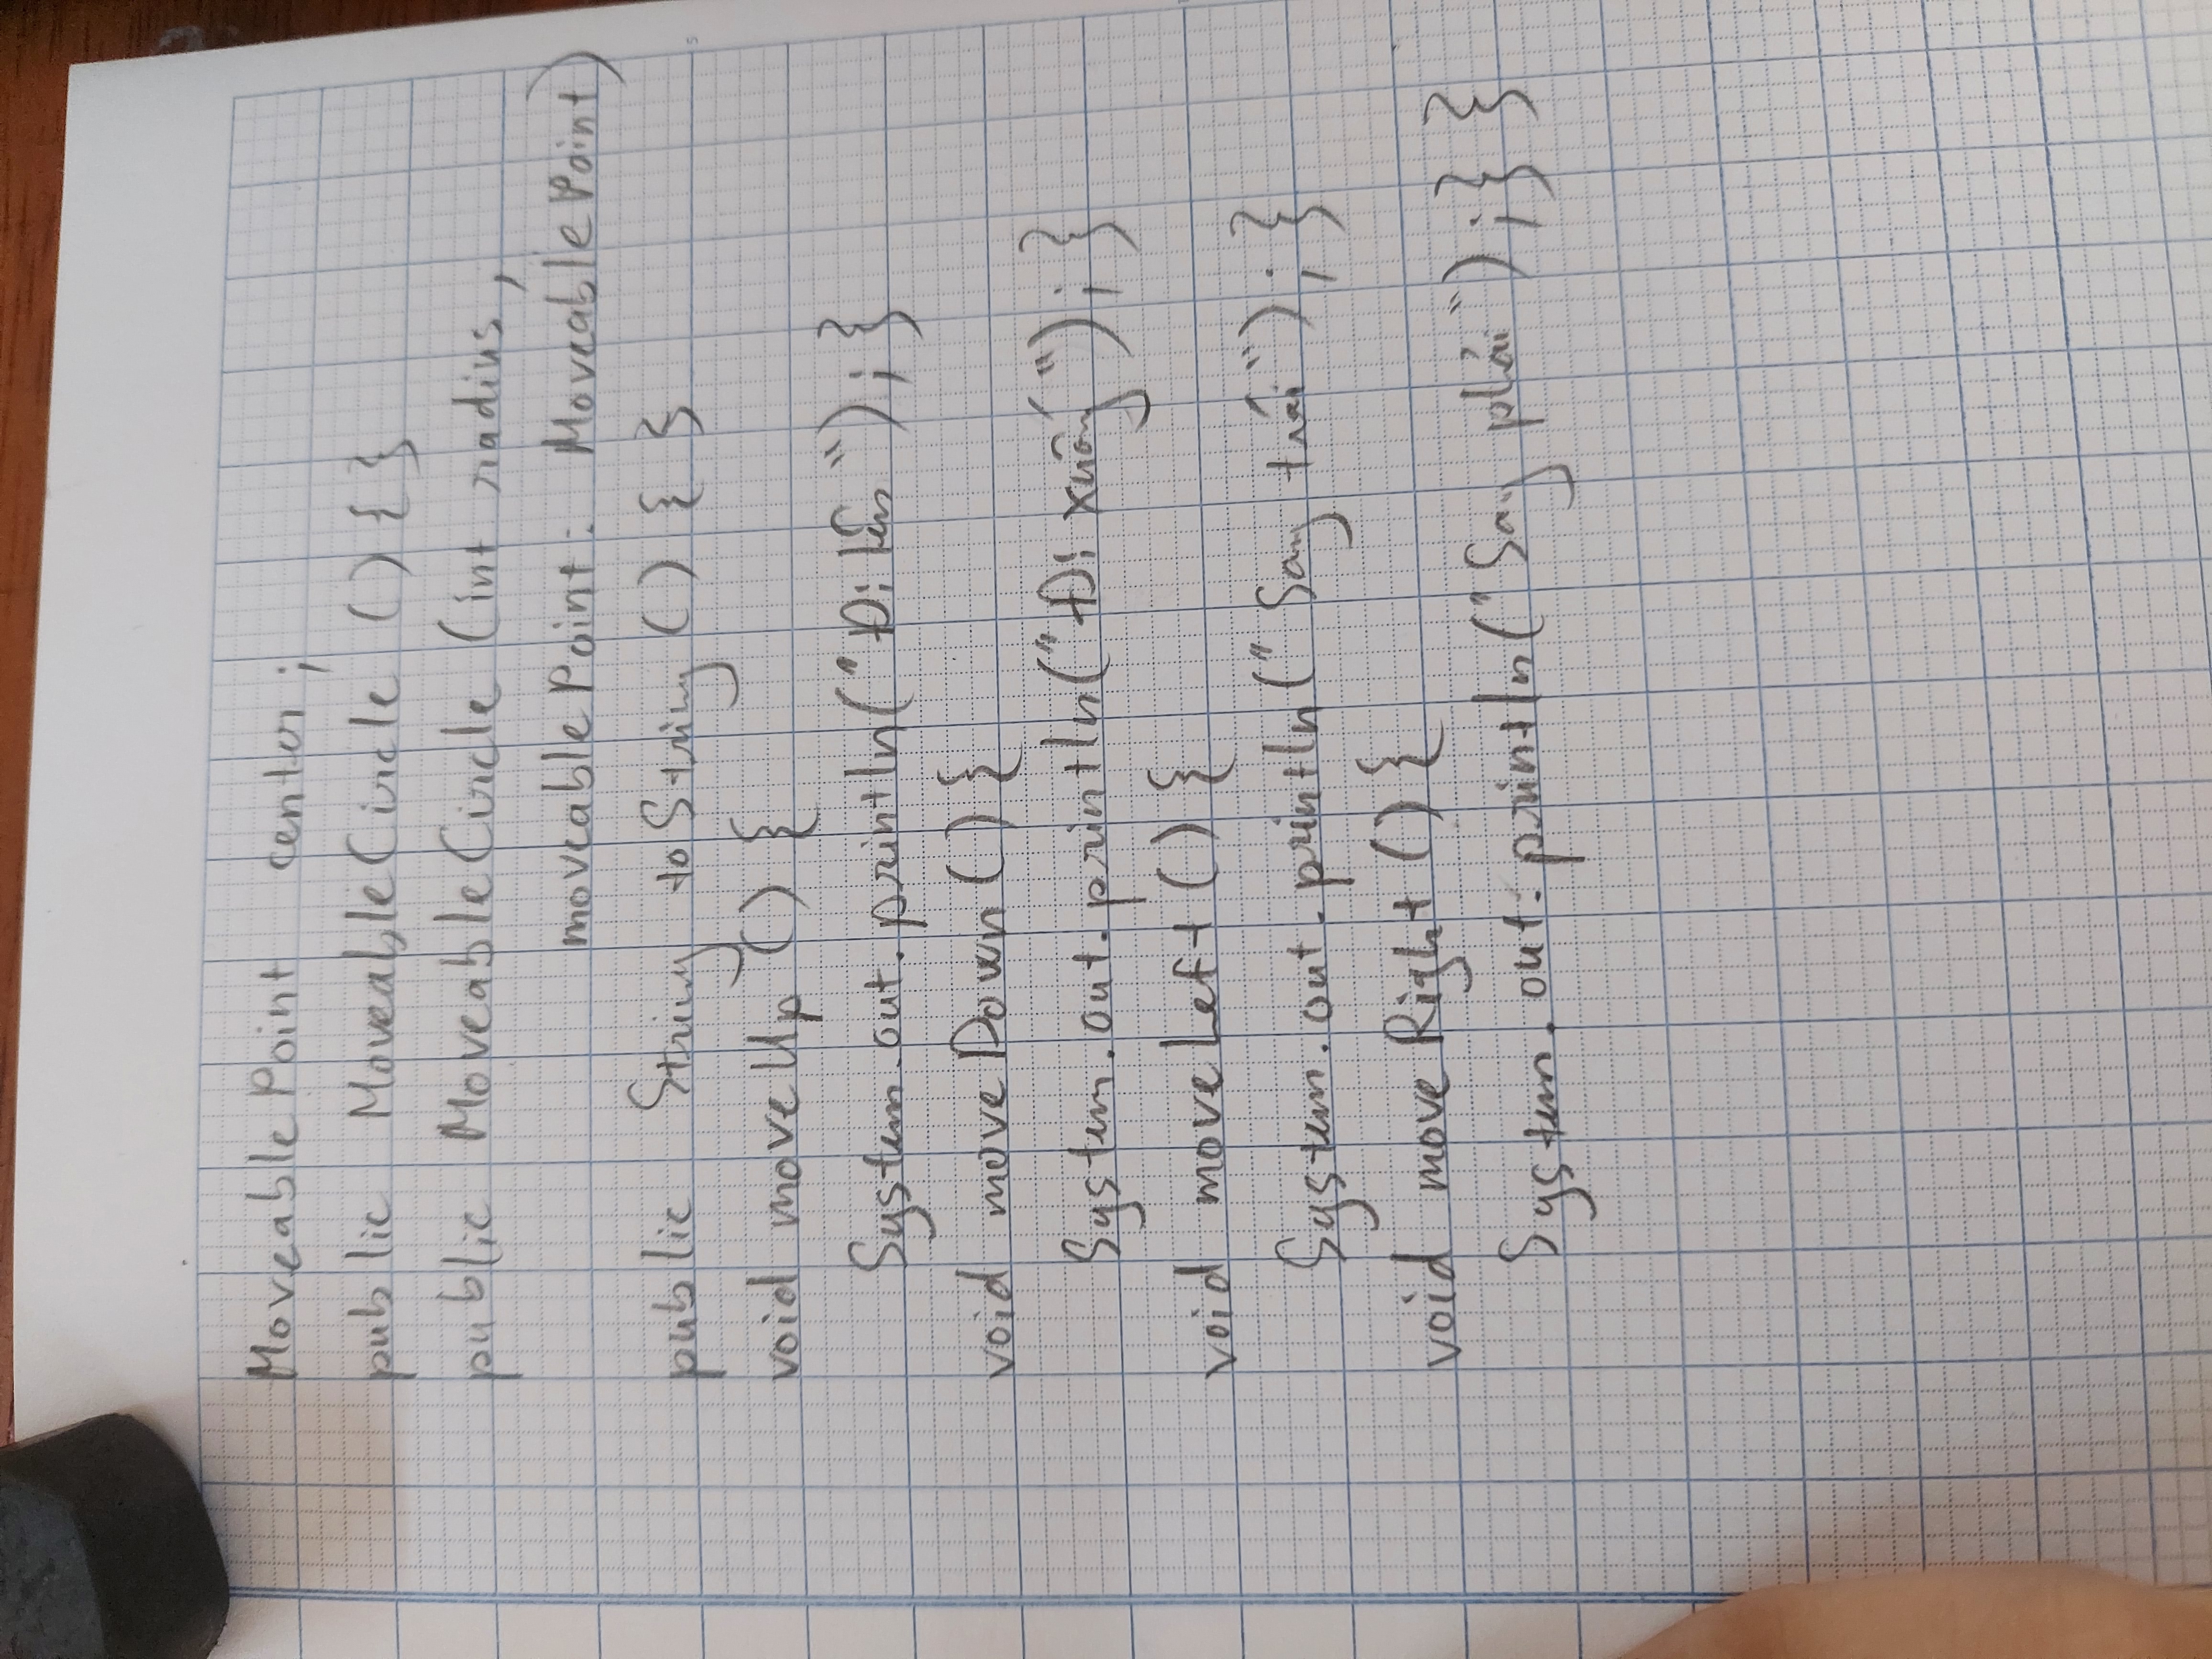 MoveablePoint center;
public MoveableCircle () { }
public MoveableCircle (int radius,
moveablePoint: MoveablePoint)
public String toString () { }
void moveUp () {
System.out.println("Đi lên"); }
void moveDown () {
System.out.println("Đi xuống"); }
void moveLeft () {
System.out.println("Sang trái"); }
void moveRight () {
System.out.println("Sang phải"); } }
5